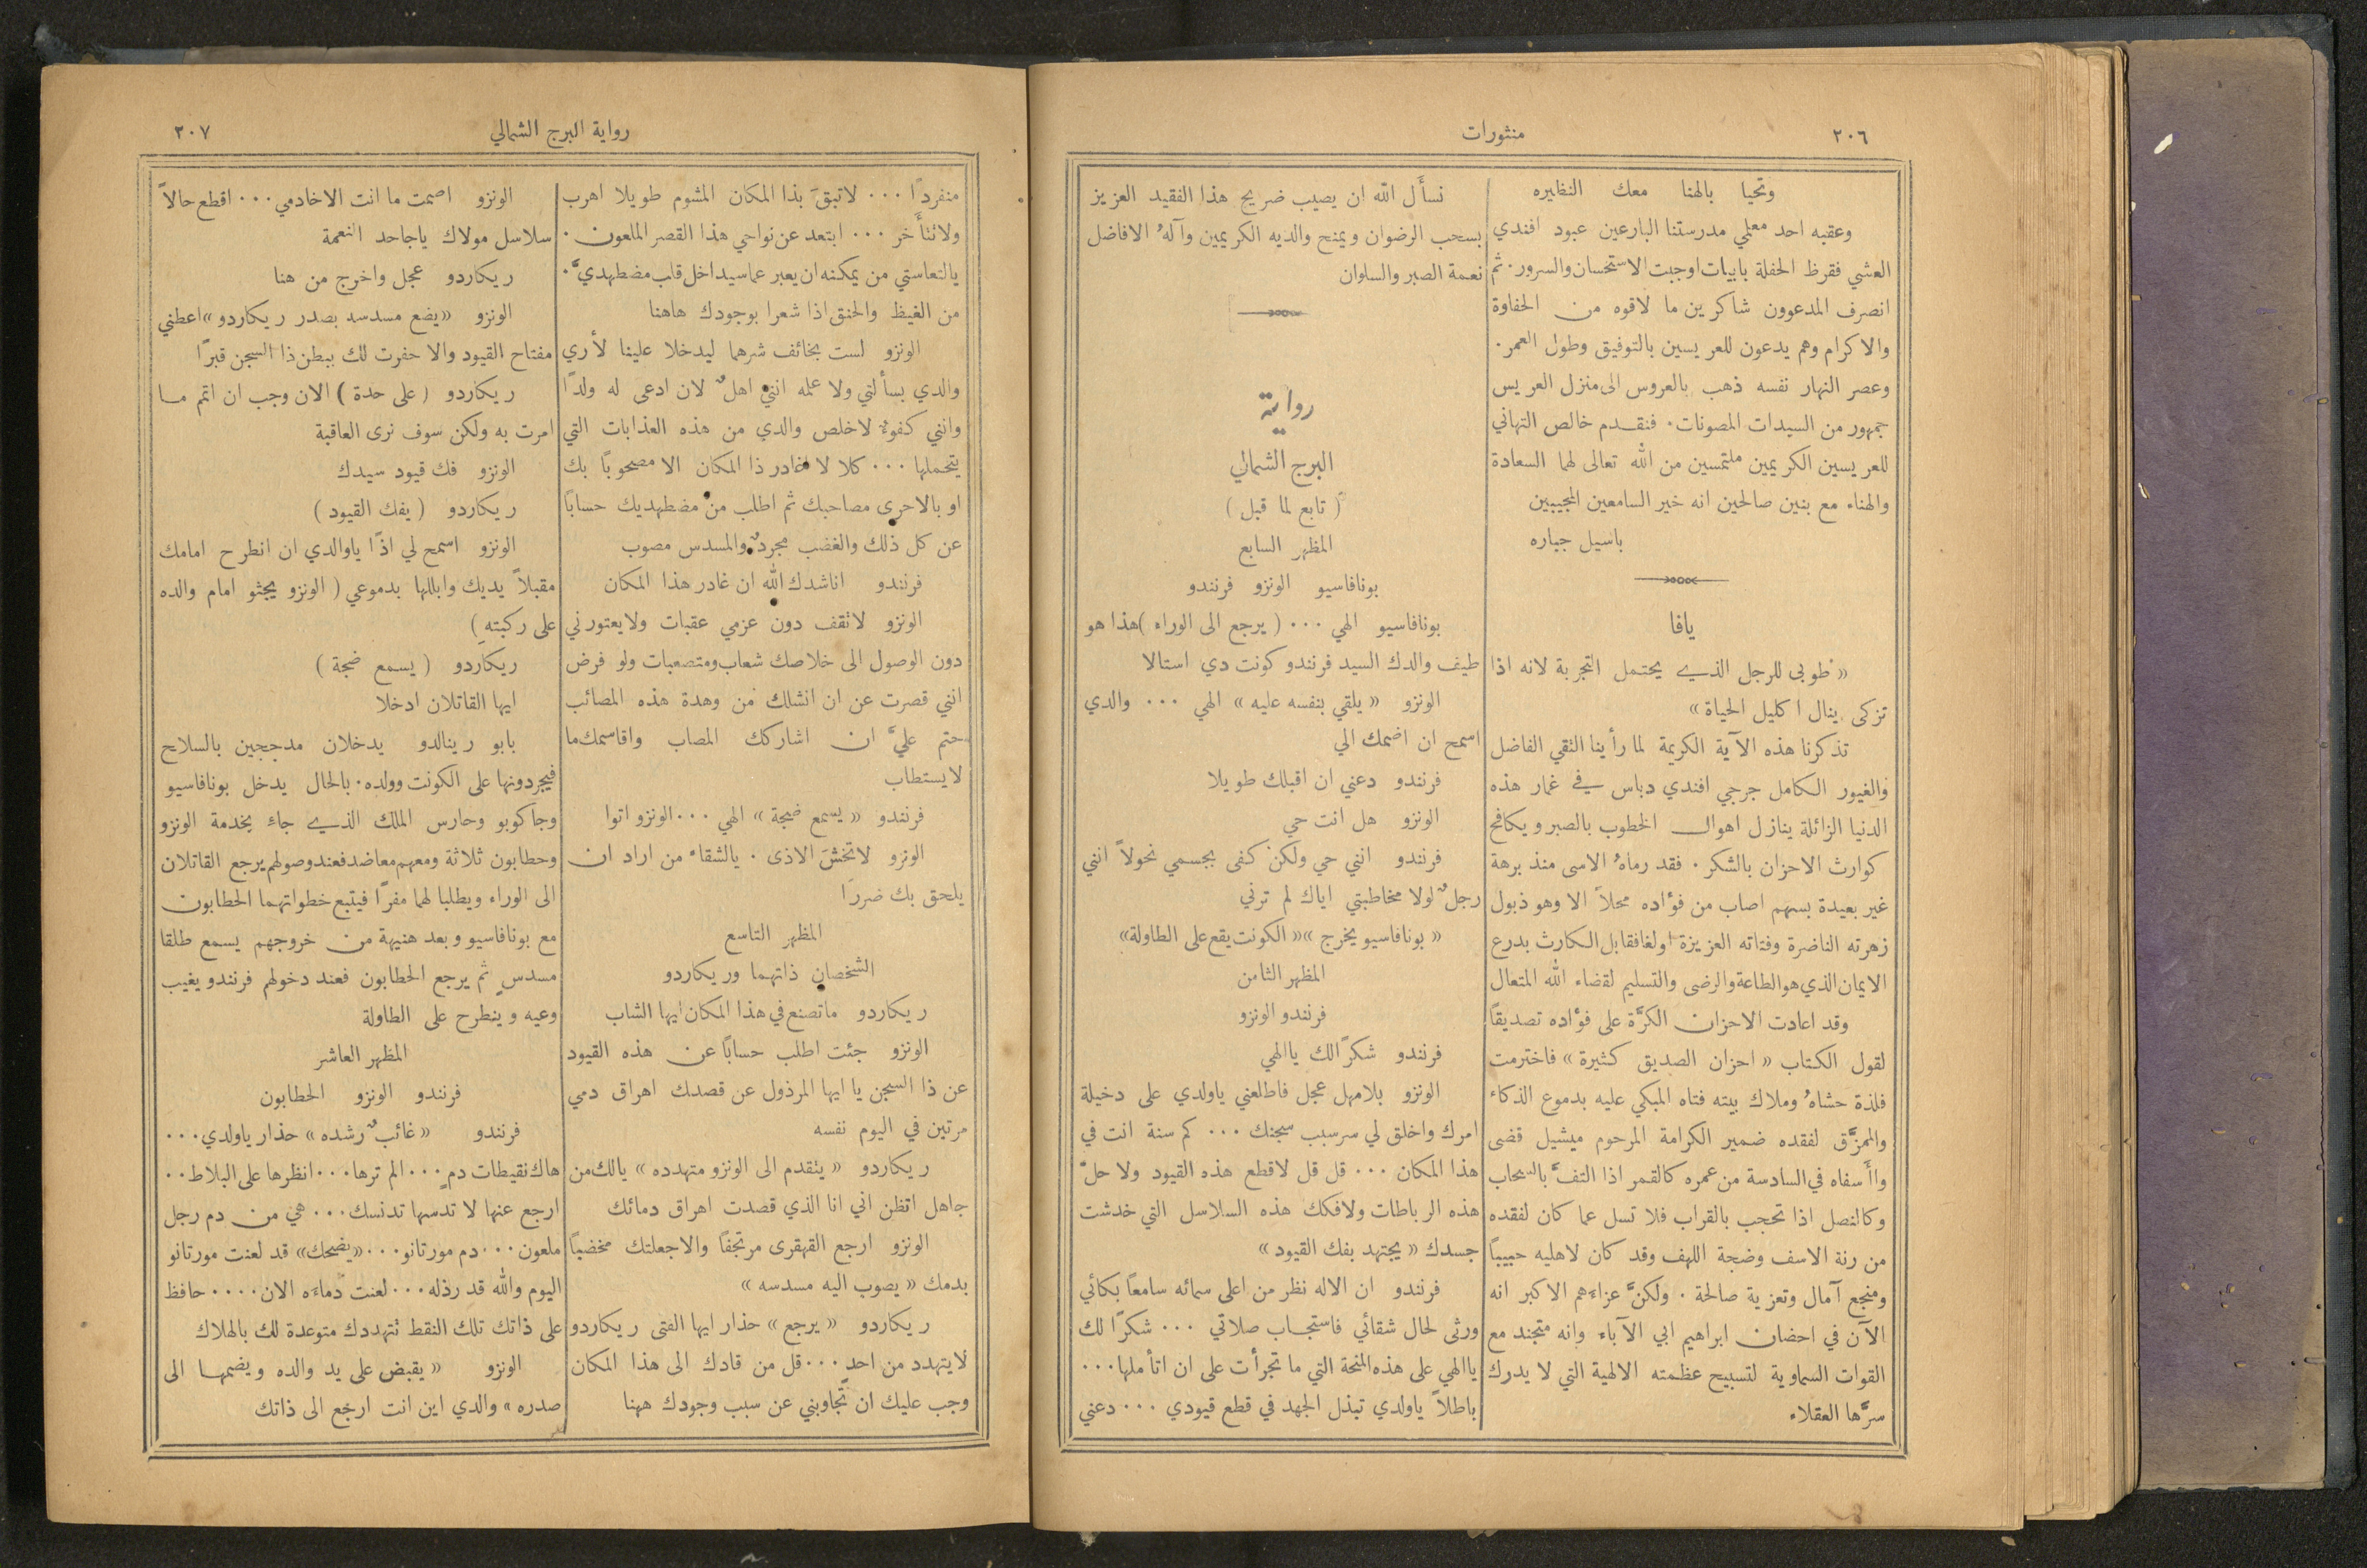 ٢٠٦
منثورات
وتحيا بالهنا معك النظيره
وعقبه احد معلمي مدرستنا البارعين عبود افندي
العشي فقرظ الحفلة بابيات اوجبت الاستحسان والسرور. ثم
انصرف المدعوون شاكرين ما لاقوه من الحفاوة
والاكرام وهم يدعون للعريسين بالتوفيق وطول العمر.
وعصر النهار نفسه ذهب بالعروس الى منزل العريس
جمهور من السيدات المصونات. فنقدم خالص التهاني
للعريسين الكريمين ملتمسين من الله تعالى لهما السعادة
والهناء مع بنين صالحين انه خير السامعين المجيبين
باسيل جباره
يافا
« طوبى للرجل الذي يحتمل التجربة لانه اذا
تزكى ينال اكليل الحياة »
تذكرنا هذه الآية الكريمة لما رأينا التقي الفاضل
والغيور الكامل جرجي افندي دباس في غمار هذه
الدنيا الزائلة ينازل اهوال الخطوب بالصبر ويكافح
كوارث الاحزان بالشكر. فقد رماهُ الاسى منذ برهة
غير بعيدة بسهم اصاب من فؤاده محلاً الا وهو ذبول
زهرته الناضرة وفتاته العزيزة اولغا فقابل الكارث بدرع
الايمان الذي هو الطاعة والرضى والتسليم لقضاء الله المتعال
وقد اعادت الاحزان الكرَّة على فؤاده تصديقًا
لقول الكتاب « احزان الصديق كثيرة » فاخترمت
فلذة حشاهُ وملاك بيته فتاه المبكي عليه بدموع الذكاء
والممزَّق لفقده ضمير الكرامة المرحوم ميشيل قضى
واأسفاه في السادسة من عمره كالقمر اذا التفَّ بالسحاب
وكالنصل اذا تحجب بالقراب فلا تسل عما كان لفقده
من رنة الاسف وضجة اللهف وقد كان لاهليه حبيبًا
ومنجع آمال وتعزية صالحة. ولكنَّ عزاءهم الاكبر انه
الآن في احضان ابراهيم ابي الآباء وانه متجند مع
القوات السماوية لتسبيح عظمته الالهية التي لا يدرك
سرَّها العقلاء
نسأل الله ان يصيب ضريح هذا الفقيد العزيز
بسحب الرضوان ويمنح والديه الكريمين وآلهُ الافاضل
نعمة الصبر والسلوان
رواية
البرج الشمالي
( تابع لما قبل )
المظهر السابع
بونافاسيو الونزو فرنندو
بونافاسيو الهي ... ( يرجع الى الوراء ) هذا هو
طيف والدك السيد فرنندو كونت دي استالا
الونزو « يلقي بنفسه عليه » الهي ... والدي
اسمح ان اضمك الي
فرنندو دعني ان اقبلك طويلا
الونزو هل انت حي
فرنندو انني حي ولكن كفى بجسمي نحولاً انني
رجلٌ لولا مخاطبتي اياك لم ترني
« بونافاسيو يخرج » « الكونت يقع على الطاولة »
المظهر الثامن
فرنندو الونزو
فرنندو شكرًا لك يا الهي
الونزو بلا مهل عجل فاطلعني ياولدي على دخيلة
امرك واخلق لي سر سبب سجنك ... كم سنة انت في
هذا المكان ... قل قل لاقطع هذه القيود ولا حلّ
هذه الرباطات ولافكك هذه السلاسل التي خدشت
جسدك « يجتهد بفك القيود »
فرنندو ان الاله نظر من اعلى سمائه سامعًا بكائي
ورثى لحال شقائي فاستجاب صلاتي ... شكرًا لك
يا الهي على هذه المنحة التي ما تجرأت على ان اتأملها...
باطلاً ياولدي تبذل الجهد في قطع قيودي ... دعني
رواية البرج الشمالي
٢٠٧
منفردًا ... لا تبقَ بذا المكان المشوم طويلا اهرب
ولا تتأخر ... ابتعد عن نواحي هذا القصر الملعون.
يالتعاستي من يمكنه ان يعبر عما سيداخل قلب مضطهديَّ.
من الغيظ والحنق اذا شعرا بوجودك هاهنا
الونزو لست بخائف شرهما ليدخلا علينا لأري
والدي بسألتي ولا علمه انني اهلٌ لان ادعى له ولدًا
وانني كفوءٌ لاخلص والدي من هذه العذابات التي
يتحملها ... كلا لا اغادر ذا المكان الا مصحوبًا بك
او بالاحرى مصاحبك ثم اطلب من مضطهديك حسابًا
عن كل ذلك والغضب مجردٌ والمسدس مصوب
فرنندو اناشدك الله ان غادر هذا المكان
الونزو لا تقف دون عزمي عقبات ولا يعتورني
دون الوصول الى خلاصك شعاب ومتصعبات ولو فرض
انني قصرت عن ان انشلك من وهدة هذه المصائب
حتم عليَّ ان اشاركك المصاب واقاسمك ما
لا يستطاب
فرنندو « يسمع ضجة » الهي ... الونزو اتوا
الونزو لا تخشَ الاذى. يالشقاء من اراد ان
يلحق بك ضررًا
المظهر التاسع
الشخصان ذاتهما وريكاردو
ريكاردو ما تصنع في هذا المكان ايها الشاب
الونزو جئت اطلب حسابًا عن هذه القيود
عن ذا السجن يا ايها المرذول عن قصدك اهراق دمي
مرتين في اليوم نفسه
ريكاردو « يتقدم الى الونزو متهدده » يالك من
جاهل اتظن اني انا الذي قصدت اهراق دمائك
الونزو ارجع القهقرى مرتجفًا والاجعلتك مخضبًا
بدمك « يصوب اليه مسدسه »
ريكاردو « يرجع » حذار ايها الفتى ريكاردو
لا يتهدد من احدٍ ... قل من قادك الى هذا المكان
وجب عليك ان تجاوبني عن سبب وجودك ههنا
الونزو اصمت ما انت الا خادمي ... اقطع حالاً
سلاسل مولاك ياجاحد النعمة
ريكاردو عجل واخرج من هنا
الونزو « يضع مسدسه بصدر ريكاردو » اعطني
مفتاح القيود والا حفرت لك ببطن ذا السجن قبرًا
ريكاردو ( على حدة ) الان وجب ان اتمم ما
امرت به ولكن سوف نرى العاقبة
الونزو فك قيود سيدك
ريكاردو ( يفك القيود )
الونزو اسمح لي اذًا ياوالدي ان انطرح امامك
مقبلاً يديك وابللها بدموعي ( الونزو يجثو امام والده
على ركبتهِ )
ريكاردو ( يسمع ضجة )
ايها القاتلان ادخلا
بابو رينالدو يدخلان مدججين بالسلاح
فيجردونها على الكونت وولده. بالحال يدخل بونافاسيو
وجاكوبو وحارس الملك الذي جاء بخدمة الونزو
وحطابون ثلاثة ومعهم معاضد فعند وصولهم يرجع القاتلان
الى الوراء ويطلبا لهما مفرًّا فيتبع خطواتهما الحطابون
مع بونافاسيو وبعد هنيهة من خروجهم يسمع طلقا
مسدسٍ ثم يرجع الحطابون فعند دخولهم فرنندو يغيب
وعيه وينطرح على الطاولة
المظهر العاشر
فرنندو الونزو الحطابون
فرنندو « غائبٌ رشده » حذار ياولدي ...
هاك نقيطات دمٍ ... الم ترها ... انظرها على البلاط ..
ارجع عنها لا تدسها تدنسك ... هي من دم رجل
ملعون ... دم مورتانو ... « يضحك » قد لعنت مورتانو
اليوم والله قد رذله ... لعنت دماءه الان .... حافظ
على ذاتك تلك النقط تتهددك متوعدة لك بالهلاك
الونزو « يقبض على يد والده ويضمها الى
صدره » والدي اين انت ارجع الى ذاتك